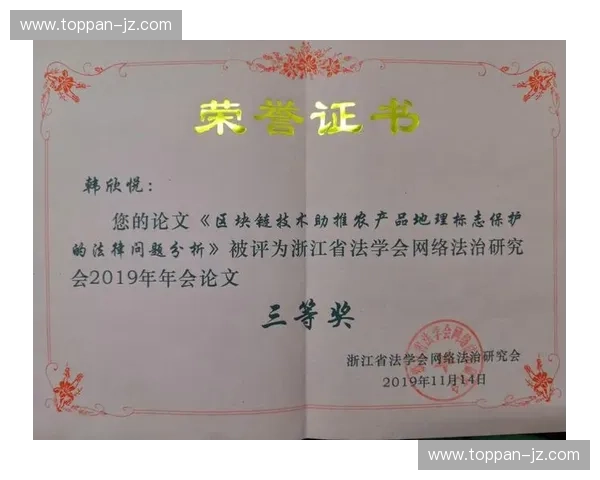 www.toppan-jz.com
荣誉证书
韩欣悦：
您的论文《区块链技术助推农产品地理标志保护
的法律问题分析》被评为浙江省法学会网络法治研究
会2019年年会论文
三等奖
浙江省法学会网络法治研究会
2019年11月14日
www.toppan-jz.com